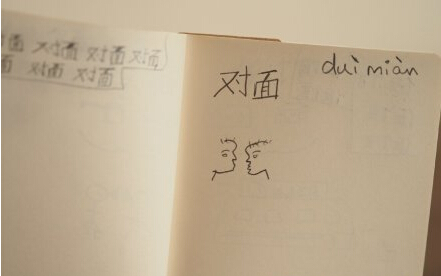 面 对面 对面 对面
面 对面 对面
对面
duì miàn